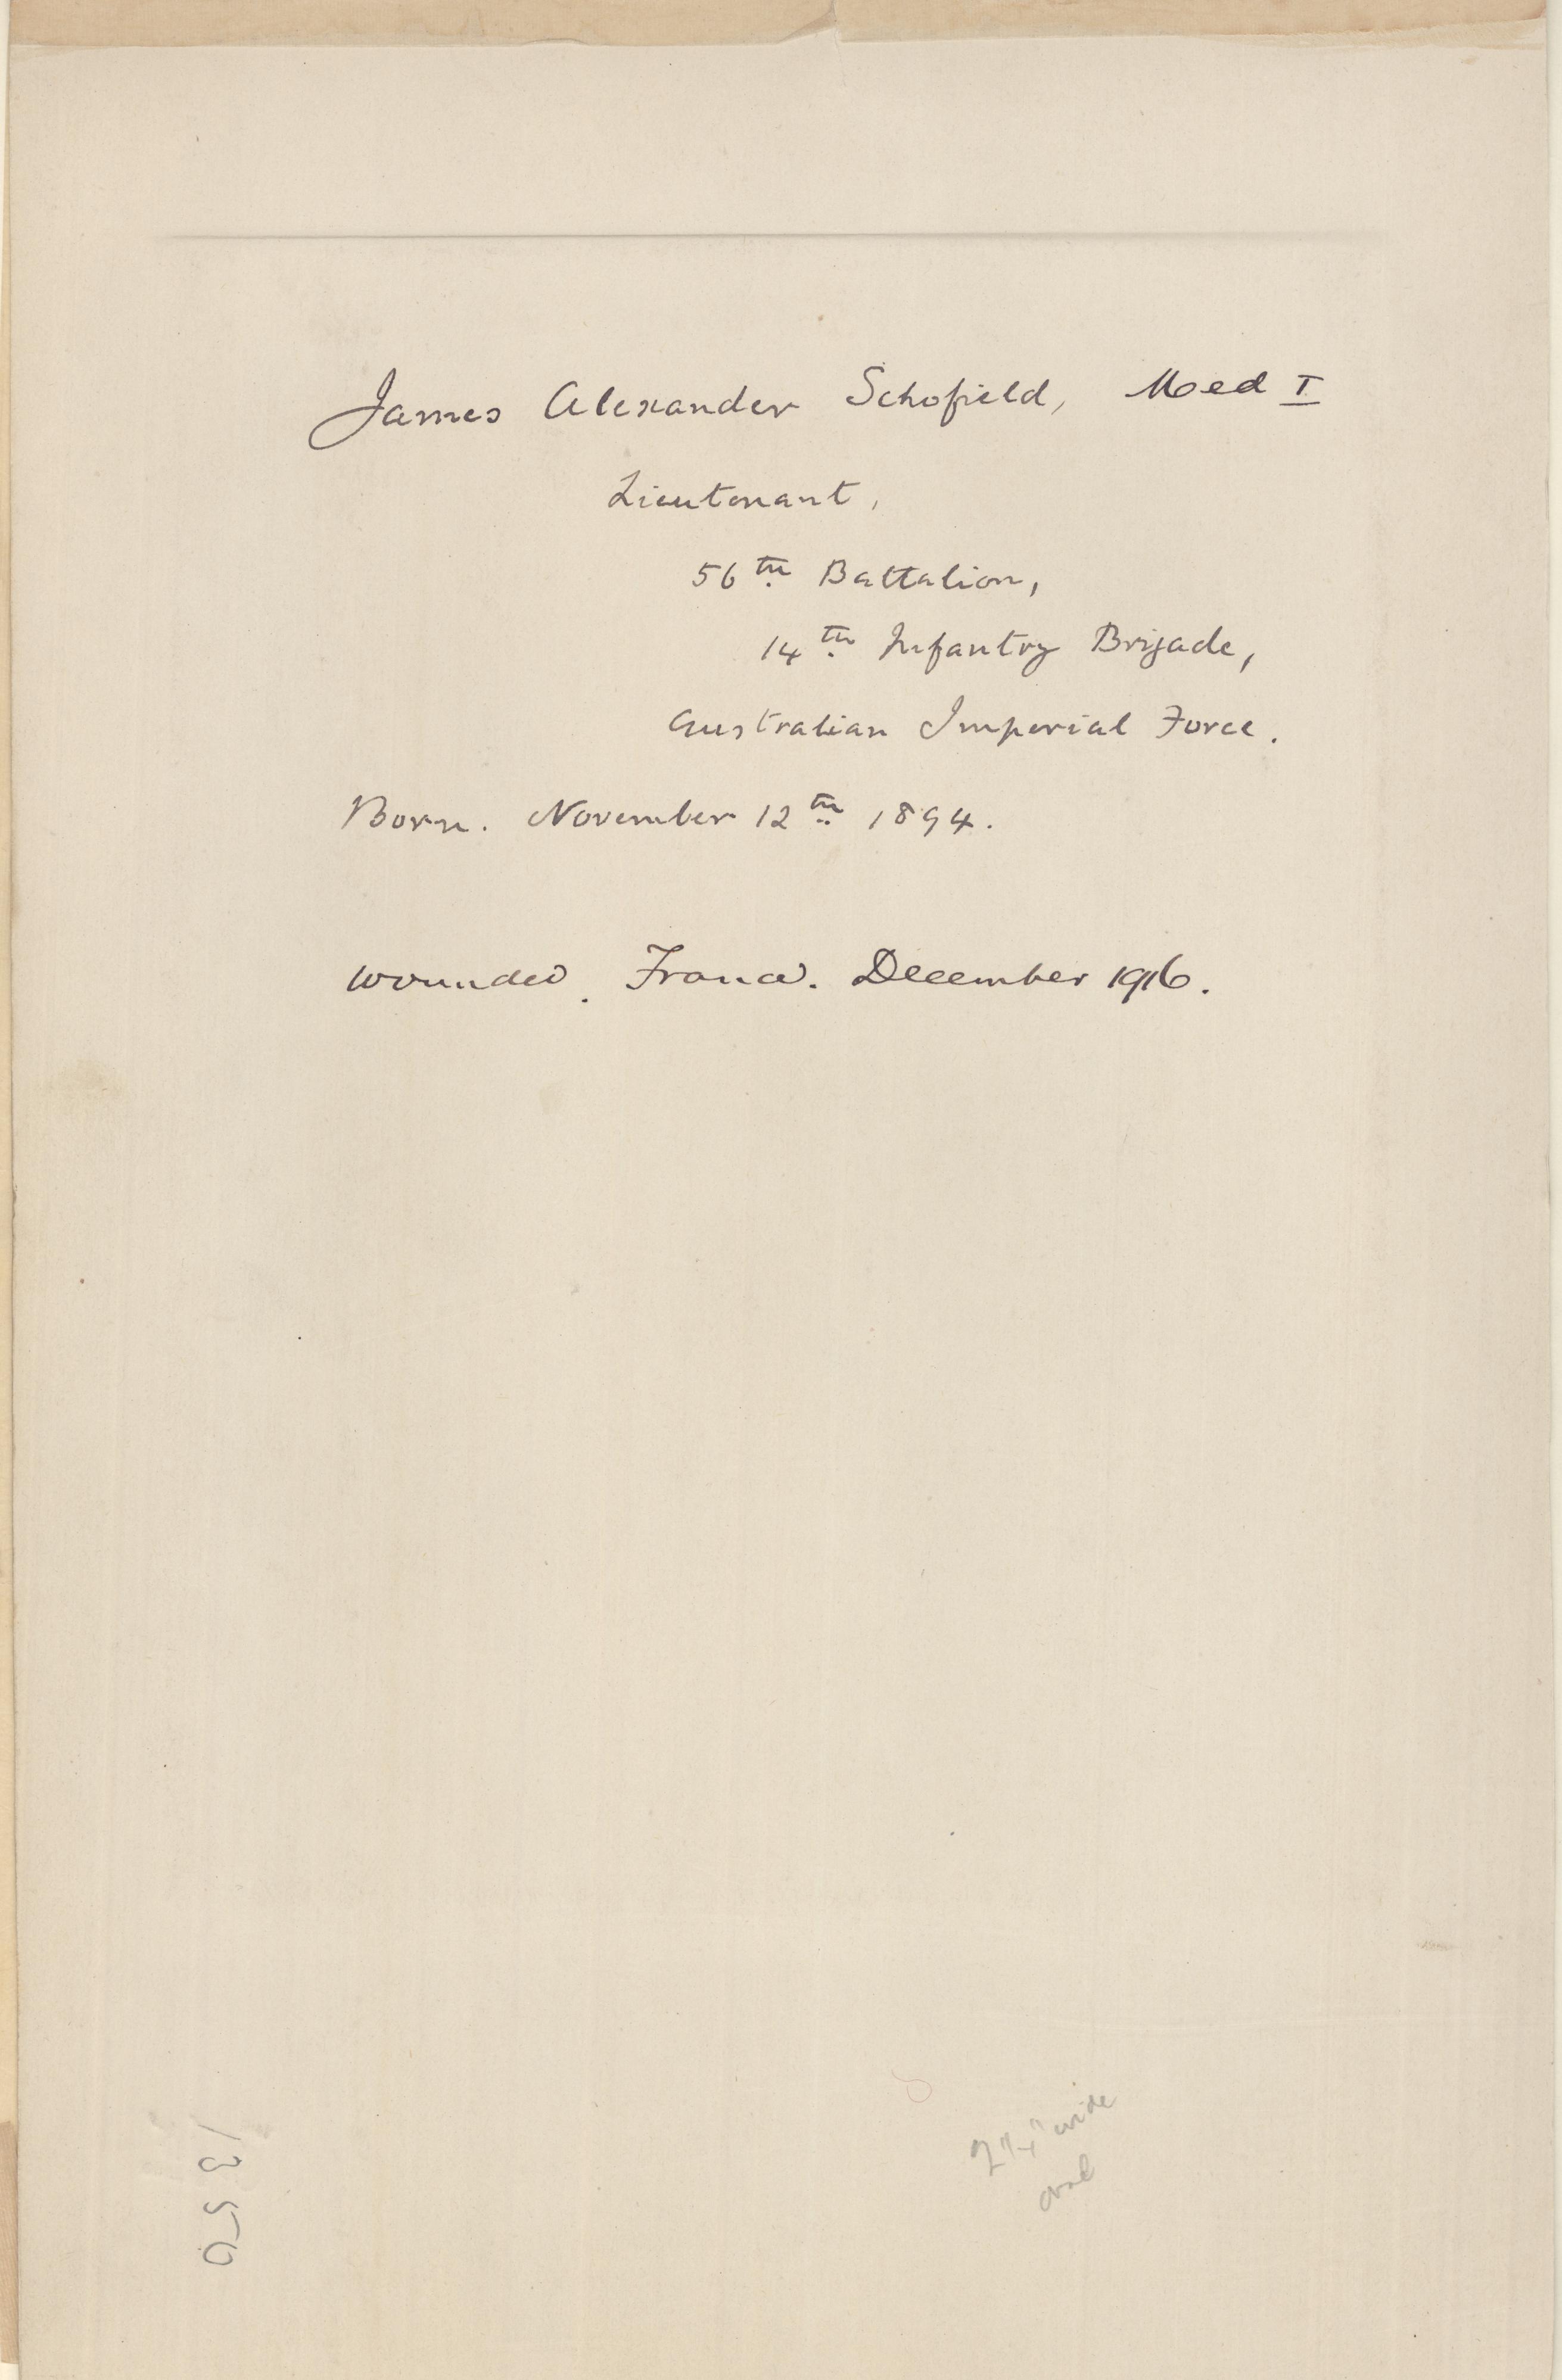 James Alexander Schofield, Med I
Lieutenant,
56th Battalion,
14th Infantry Brigade,
Australian Imperial Force.
Born. November 12th 1894.
Wounded. France. December 1916.
2 1/4" wide
oval